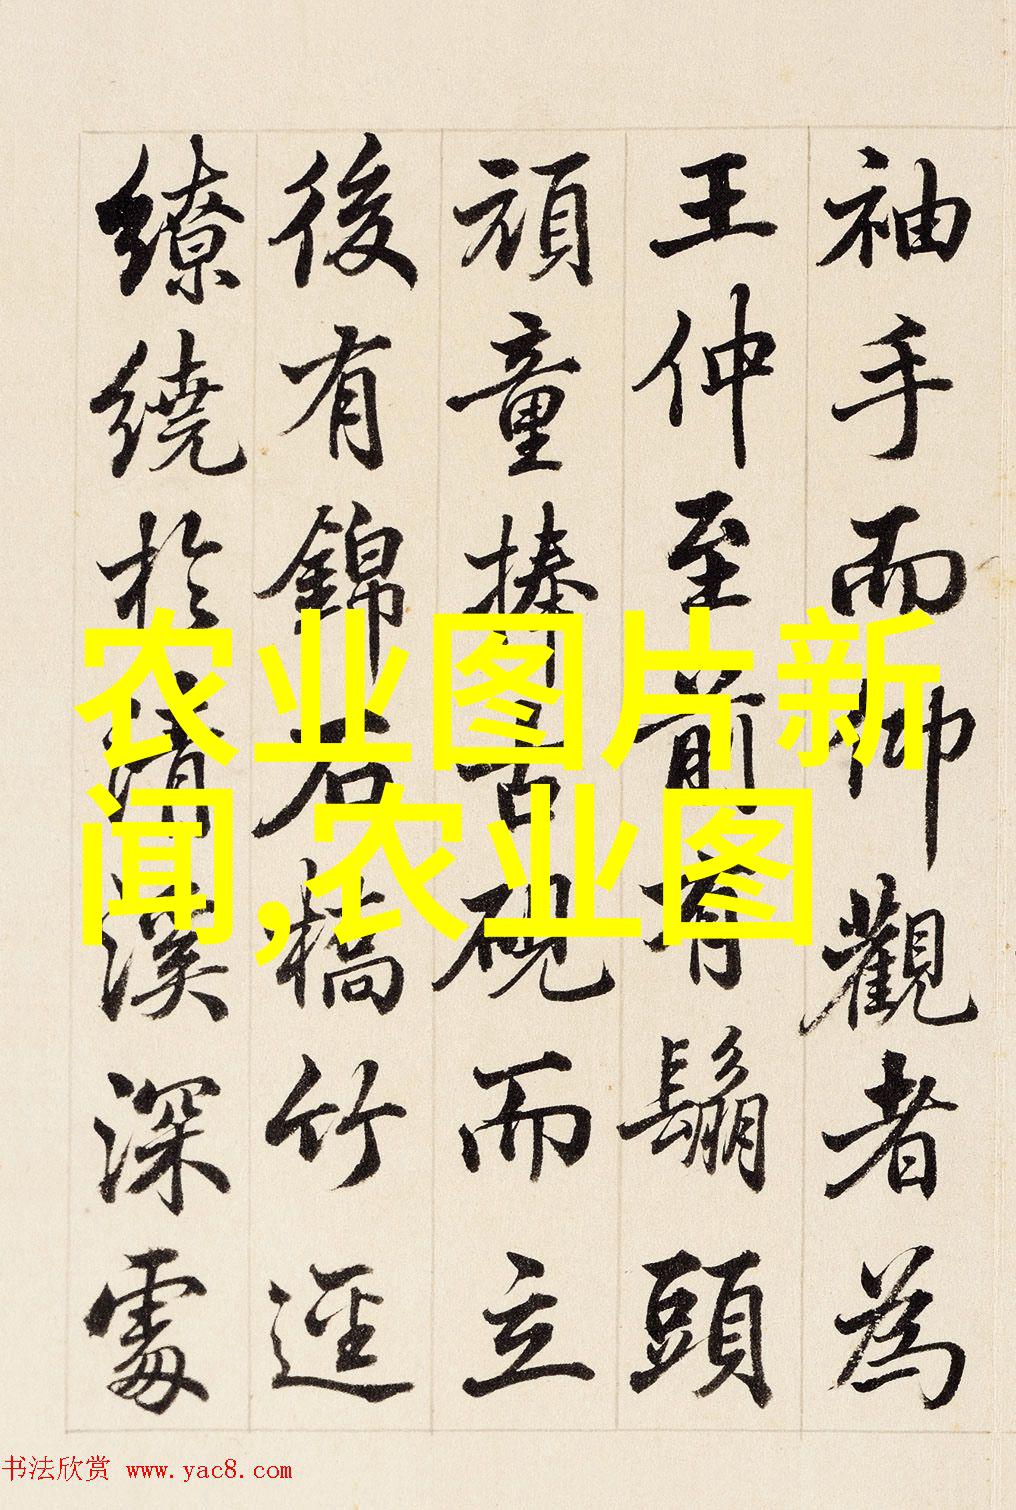 袖手而仰觀者為
王仲至前有鬅頭
頑童捧古硯而立
後有錦石橋竹逕
繚繞於清溪深處
农业图片新
闻,农业图
书法欣赏 www.yac8.com